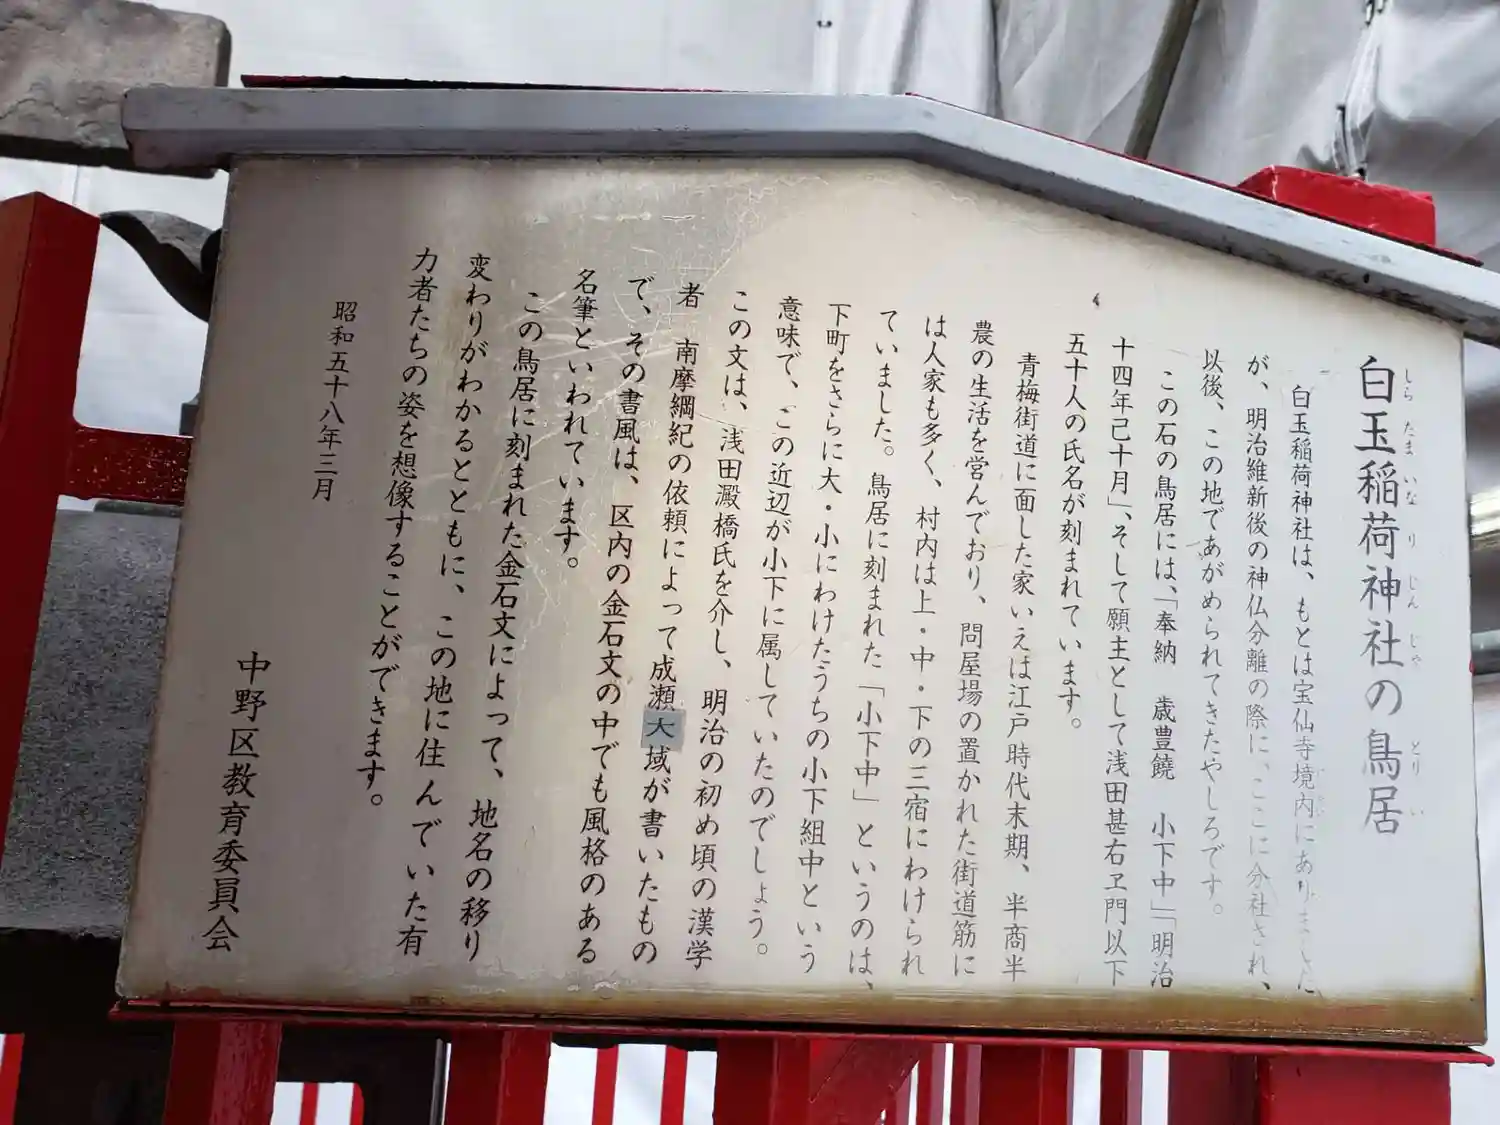 白玉稲荷神社の鳥居
しら たま いな り じん じゃ とり い
白玉稲荷神社は、もとは宝仙寺境内にありました
が、明治維新後の神仏分離の際に、ここに分社され、
以後、この地であがめられてきたやしろです。
この石の鳥居には、「奉納 歳豊饒 小下中」「明治
十四年己十月」、そして願主として浅田甚右ヱ門以下
五十人の氏名が刻まれています。
青梅街道に面した家いえは江戸時代末期、半商半
農の生活を営んでおり、問屋場の置かれた街道筋に
は人家も多く、村内は上・中・下の三宿にわけられ
ていました。鳥居に刻まれた「小下中」というのは、
下町をさらに大・小にわけたうちの小下組中という
意味で、この近辺が小下に属していたのでしょう。
この文は、浅田澱橋氏を介し、明治の初め頃の漢学
者 南摩綱紀の依頼によって成瀬大域が書いたもの
で、その書風は、区内の金石文の中でも風格のある
名筆といわれています。
この鳥居に刻まれた金石文によって、地名の移り
変わりがわかるとともに、この地に住んでいた有
力者たちの姿を想像することができます。
昭和五十八年三月
中野区教育委員会